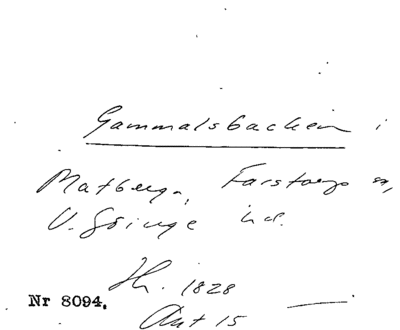 Gammalsbacken i
Matberga, Farstorps sn,
V. Göinge hd.
Hh. 1828
Nr 8094.
Akt 15